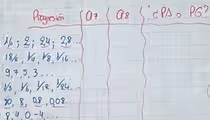 Progresión a7 a8 ¿PA o PG?
1,6 ; 2 ; 2,4 ; 2,8...
1/8, 1/16...
9, 7, 5, 3...
1/3, 1/6, 1/12, 1/24...
80, 8, 0,8, 0,08...
8, 4, 0, -4...